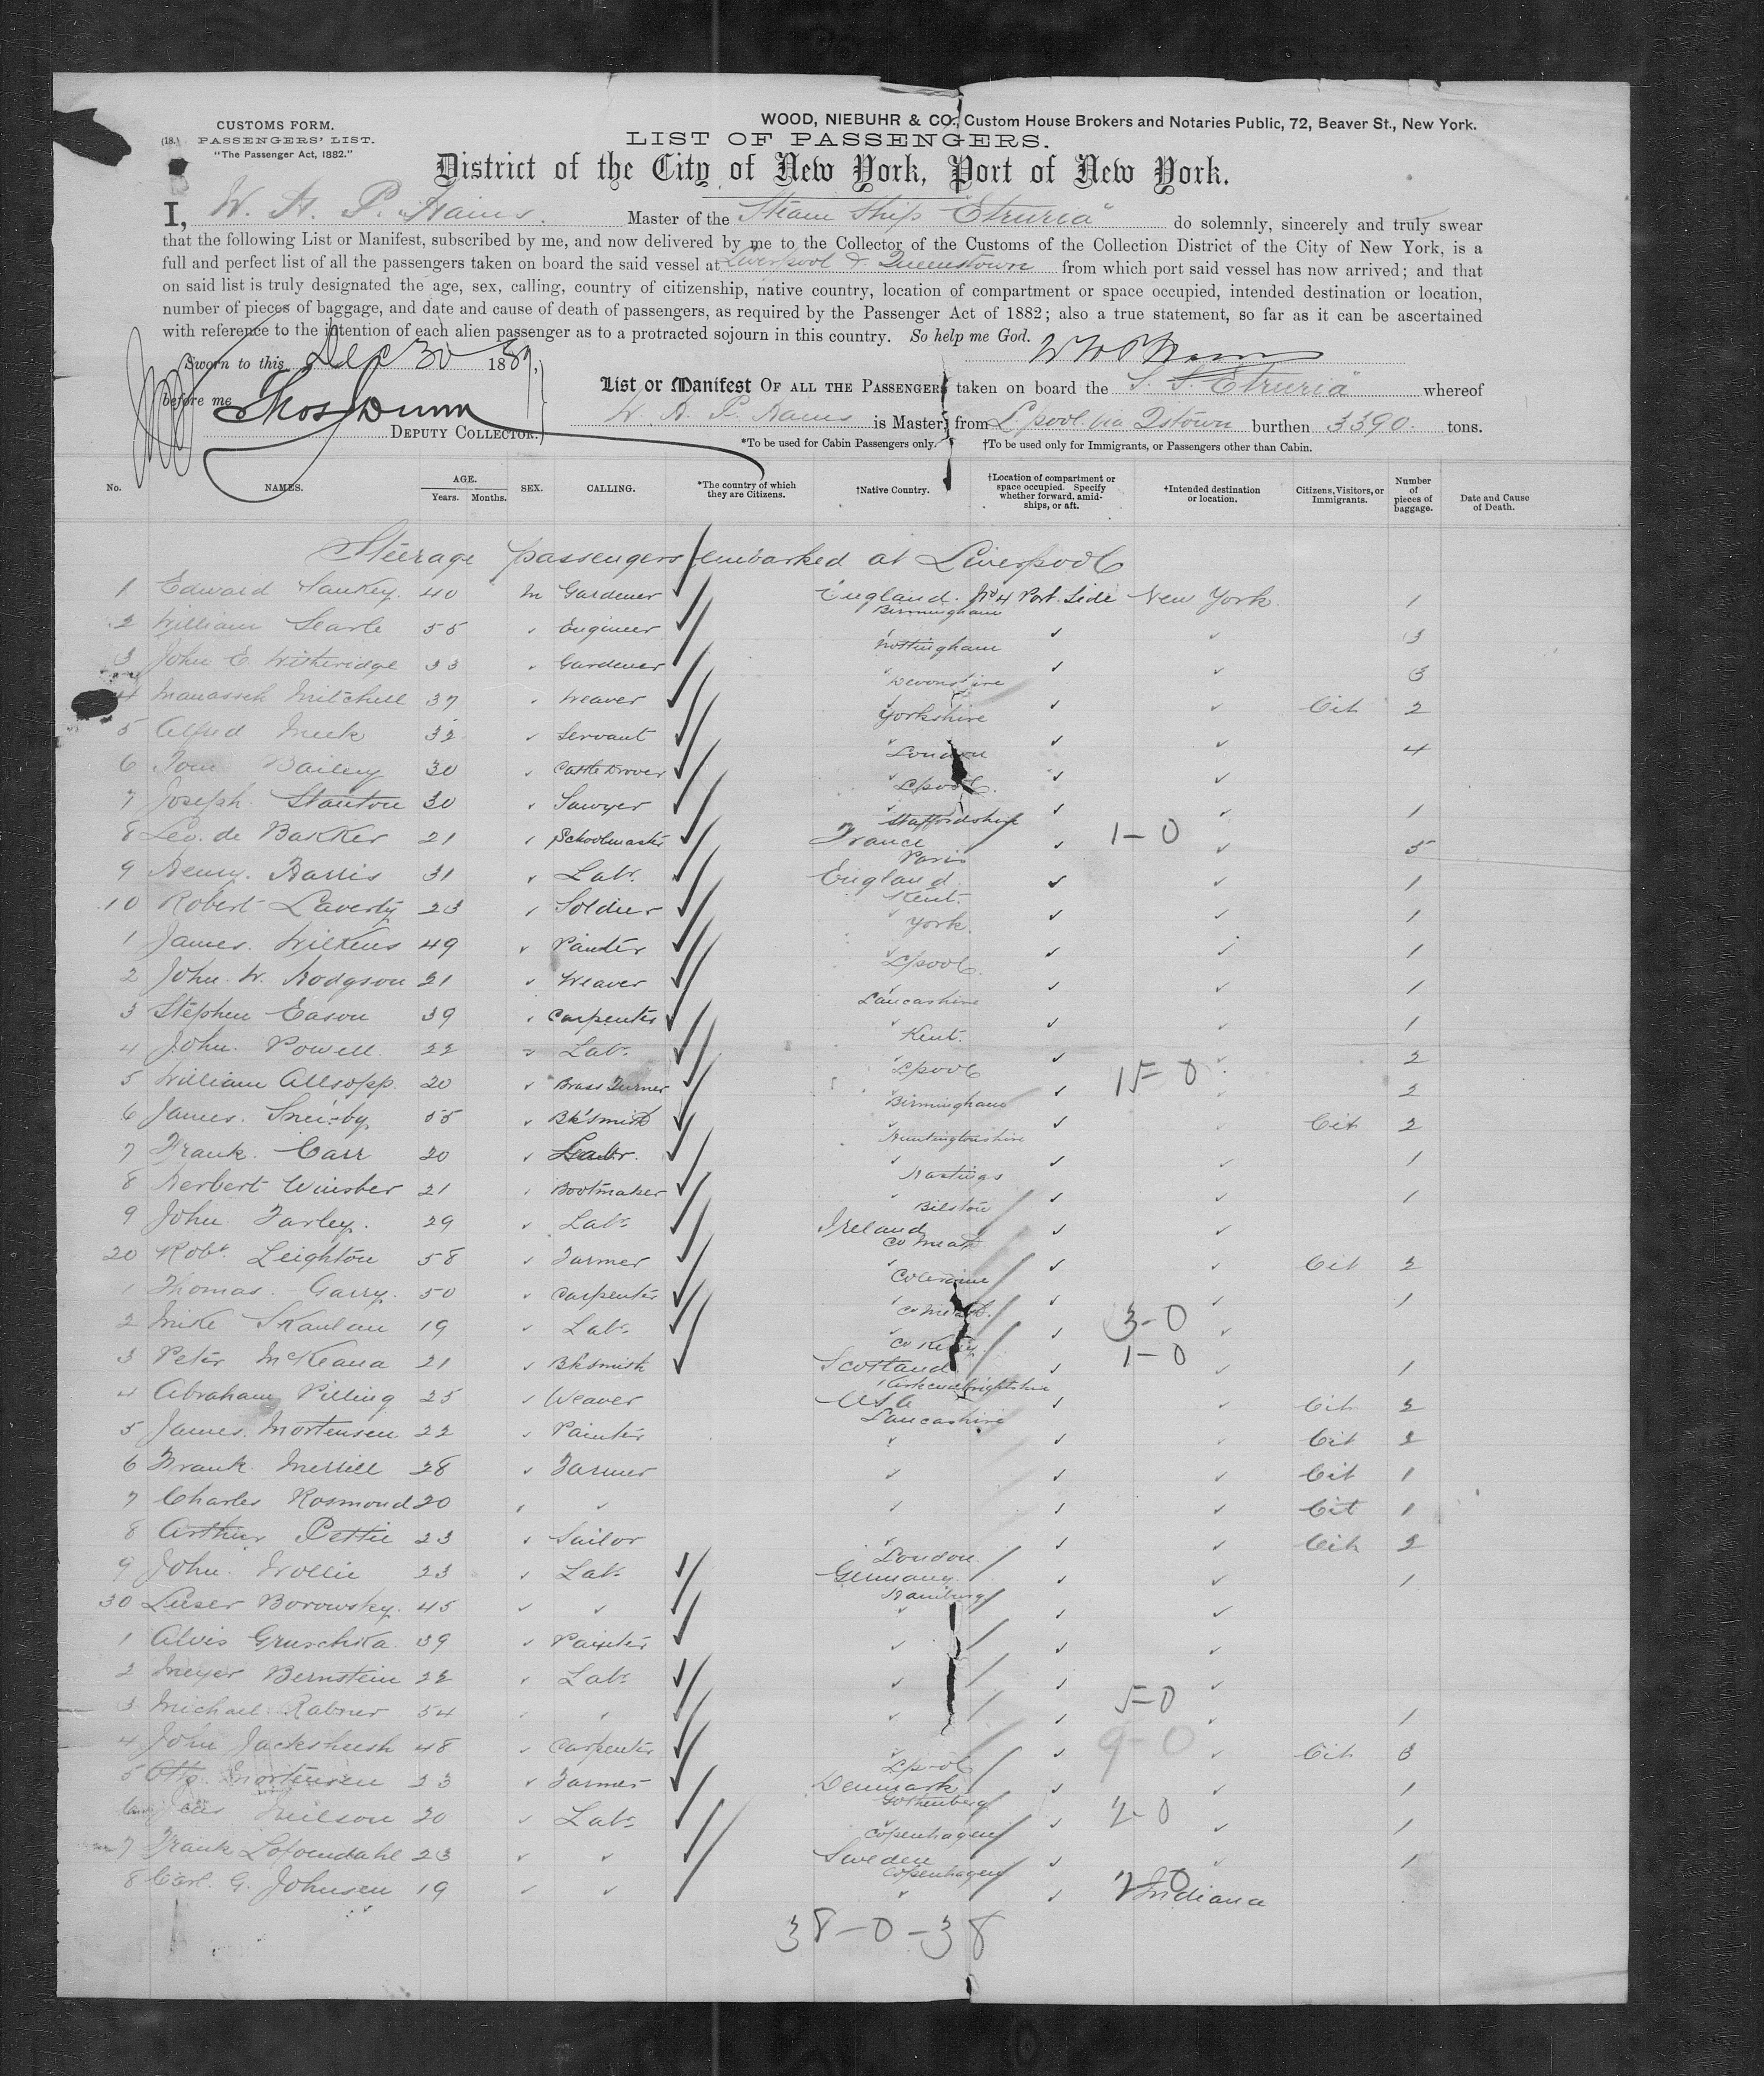 CUSTOMS FORM.
(18.) PASSENGERS' LIST.
"The Passenger Act, 1882."
WOOD, NIEBUHR & CO., Custom House Brokers and Notaries Public, 72, Beaver St., New York.
LIST OF PASSENGERS.
District of the City of New York, Port of New York.
I, W. H. P. Hains. Master of the Steam Ship "Etruria" do solemnly, sincerely and truly swear
that the following List or Manifest, subscribed by me, and now delivered by me to the Collector of the Customs of the Collection District of the City of New York, is a
full and perfect list of all the passengers taken on board the said vessel at Liverpool & Queenstown from which port said vessel has now arrived; and that
on said list is truly designated the age, sex, calling, country of citizenship, native country, location of compartment or space occupied, intended destination or location,
number of pieces of baggage, and date and cause of death of passengers, as required by the Passenger Act of 1882; also a true statement, so far as it can be ascertained
with reference to the intention of each alien passenger as to a protracted sojourn in this country. So help me God.
Sworn to this Dec 30 1889, W H P Hains
before me Thos Dunn
DEPUTY COLLECTOR.
List or Manifest OF ALL THE PASSENGERS taken on board the S. S. "Etruria" whereof
W. H. P. Hains is Master, from L'pool via Q'stown burthen 3390. tons.
*To be used for Cabin Passengers only. †To be used only for Immigrants, or Passengers other than Cabin.
No. NAMES. AGE. Years. Months. SEX. CALLING. *The country of which they are Citizens. †Native Country. †Location of compartment or space occupied. Specify whether forward, amidships, or aft. †Intended destination or location. Citizens, Visitors, or Immigrants. Number of pieces of baggage. Date and Cause of Death.
Steerage passengers embarked at Liverpool
1 Edward Sankey. 40 m Gardener England. Birmingham No 4 Port Side New York. 1
2 William Searle 55 ✓ Engineer ✓ Nottingham ✓ ✓ 3
3 John E Witheridge 33 ✓ Gardener ✓ Devonshire ✓ ✓ 3
4 Manasseh Mitchell 37 ✓ Weaver ✓ Yorkshire ✓ ✓ Cit 2
5 Alfred 32 ✓ Servant ✓ London ✓ ✓ 4
6 Tom Bailey 30 ✓ Cattle Drover ✓ L'pool. ✓ ✓
7 Joseph Stanton 30 ✓ Sawyer ✓ Staffordshire ✓ ✓ 1
8 Leo. de Bakker 21 ✓ Schoolmaster France Paris ✓ 1-0 ✓ 5
9 Henry. Harris 31 ✓ Labr. England Kent. ✓ ✓ 1
10 Robert Laverty 23 ✓ Soldier ✓ York. ✓ ✓ 1
1 James. Wilkens 49 ✓ Painter ✓ L'pool. ✓ ✓ 1
2 John. W. Hodgson 21 ✓ Weaver ✓ Lancashire ✓ ✓ 1
3 Stephen Eason 39 ✓ Carpenter ✓ Kent. ✓ ✓ 1
4 John. Powell. 22 ✓ Labr ✓ L'pool ✓ ✓ 2
5 William Allsopp. 20 ✓ Brass Turner ✓ Birmingham ✓ 15-0 2
6 James. 55 ✓ Bk'smith ✓ Huntingtonshire ✓ Cit 2
7 Frank. Carr 20 ✓ Labr. ✓ Hastings ✓ ✓ 1
8 Herbert 21 ✓ Bootmaker ✓ Bilston ✓ ✓ 1
9 John Farley. 29 ✓ Labr Ireland Co Meath ✓ ✓
20 Robt. Leighton 58 ✓ Farmer ✓ Coleraine ✓ ✓ Cit 2
1 Thomas. Garry. 50 ✓ Carpenter ✓ Co Meath. ✓ ✓ 1
2 Mike Skanlan 19 ✓ Labr ✓ Co Kerry ✓ 3-0 ✓
3 Peter McKeana 21 ✓ Bk'smith Scotland Kirkcudbrightshire ✓ 1-0 ✓ 1
4 Abraham Pilling 25 ✓ Weaver USA Lancashire ✓ ✓ Cit 2
5 James. Mortensen 22 ✓ Painter ✓ ✓ ✓ Cit 2
6 Frank. Merrill 28 ✓ Farmer ✓ ✓ ✓ Cit 1
7 Charles Rosmond 20 ✓ ✓ ✓ ✓ ✓ Cit 1
8 Arthur Pettie 23 ✓ Sailor ✓ London ✓ ✓ Cit 2
9 John. Wollie 23 ✓ Labr Germany. Hamburg ✓ ✓ 1
30 Leiser Borowsky. 45 ✓ ✓ ✓ ✓ ✓
1 Alvis Gruschka. 39 ✓ Painter ✓ ✓ ✓
2 Meyer Bernstein 22 ✓ Labr ✓ ✓ ✓
3 Michael Rabner 54 ✓ ✓ ✓ ✓ 5-0 ✓ 1
4 John 48 ✓ Carpenter ✓ L'pool ✓ 9-0 ✓ Cit 3
5 Otto. Mortensen 23 ✓ Farmer Denmark Gothenberg ✓ ✓ 1
6 Neilson 20 ✓ Labr ✓ Copenhagen ✓ 2-0 ✓ 1
7 Frank 23 ✓ ✓ Sweden Copenhagen ✓ ✓ 1
8 Carl. G. Johnsen 19 ✓ ✓ ✓ ✓ 2-0 Indiana
38-0-38